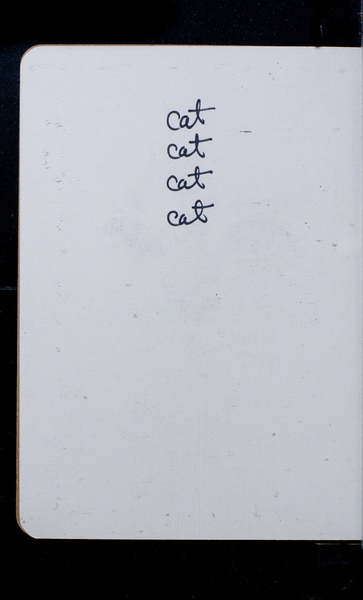 cat
cat
cat
cat